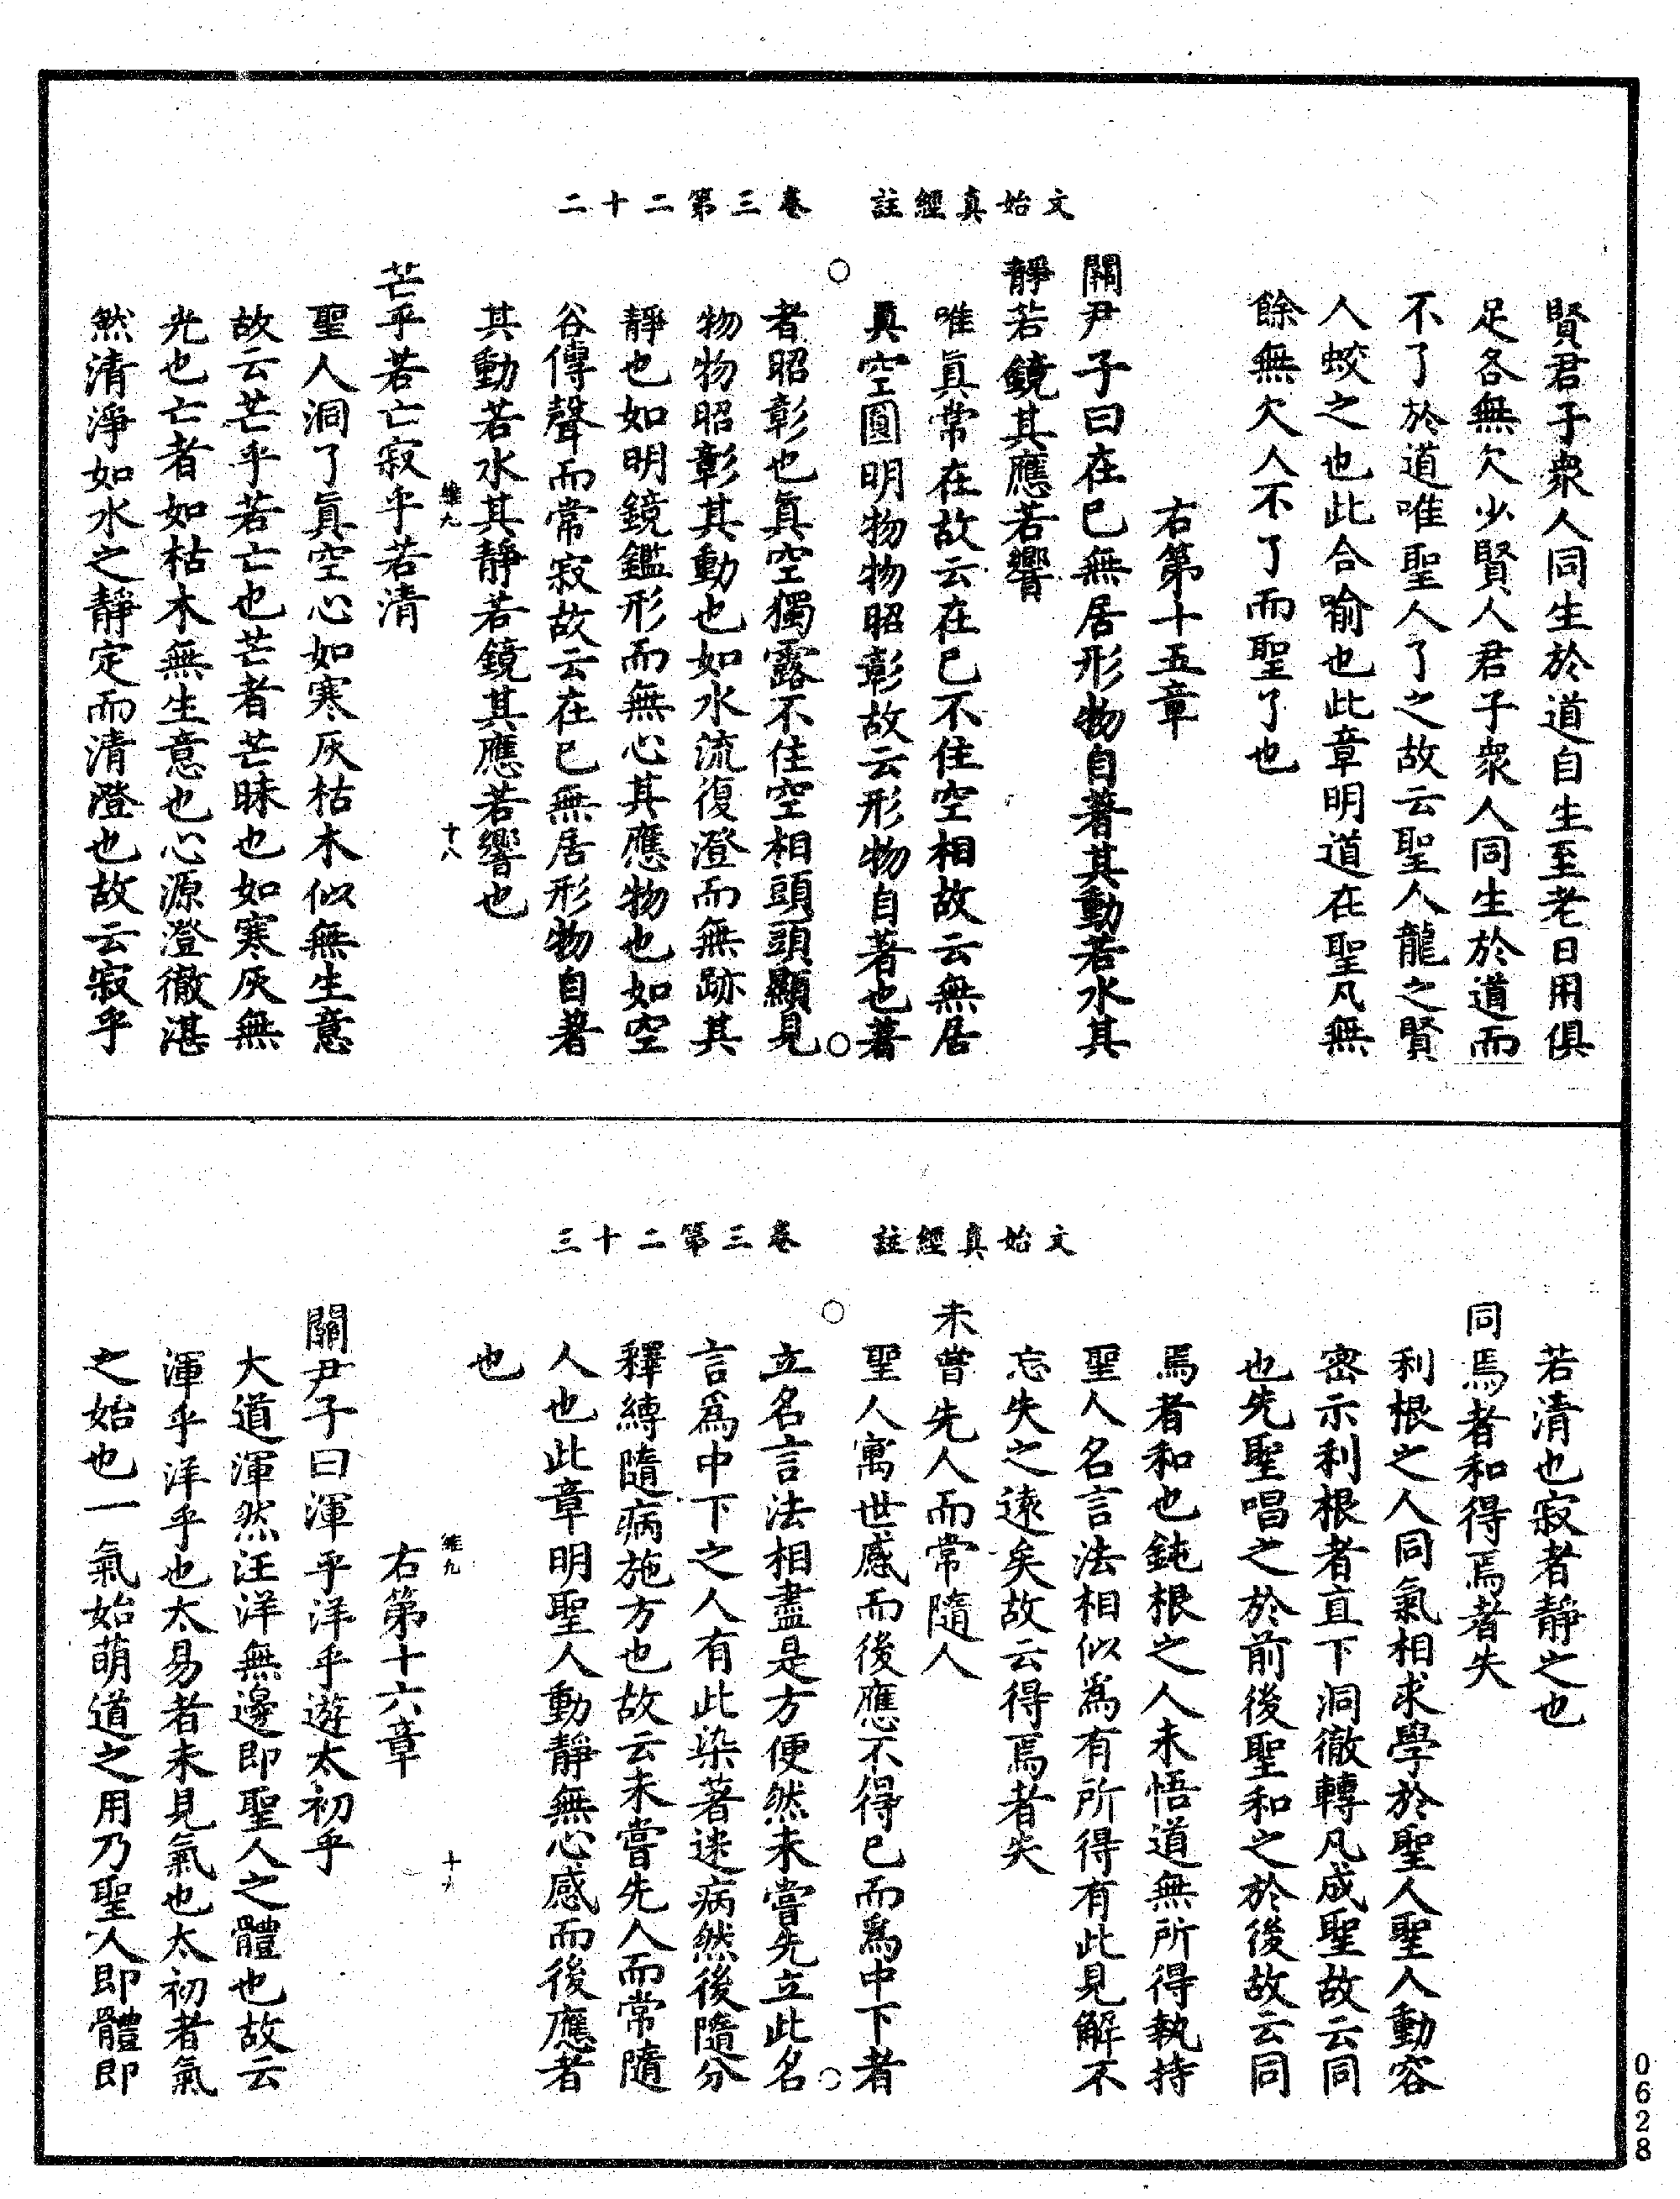 文始真經註　卷三第二十二
賢君子衆人同生於道自生至老日用俱
足各無欠少賢人君子衆人同生於道而
不了於道唯聖人了之故云聖人龍之賢
人蛟之也此合喻也此章明道在聖凡無
餘無欠人不了而聖了也
右第十五章
關尹子曰在已無居形物自著其動若水其
靜若鏡其應若響
唯真常在故云在已不住空相故云無居
真空圓明物物昭彰故云形物自著也著
者昭彰也真空獨露不住空相頭頭顯見
物物昭彰其動也如水流復澄而無跡其
靜也如明鏡鑑形而無心其應物也如空
谷傳聲而常寂故云在已無居形物自著
其動若水其靜若鏡其應若響也
維九　十八
芒乎若亡寂乎若清
聖人洞了真空心如寒灰枯木似無生意
故云芒乎若亡也芒者芒昧也如寒灰無
光也亡者如枯木無生意也心源澄徹湛
然清淨如水之靜定而清澄也故云寂乎
文始真經註　卷三第二十三
若清也寂者靜之也
同焉者和得焉者失
利根之人同氣相求學於聖人聖人動容
密示利根者直下洞徹轉凡成聖故云同
也先聖唱之於前後聖和之於後故云同
焉者和也鈍根之人未悟道無所得執持
聖人名言法相似為有所得有此見解不
忘失之遠矣故云得焉者失
未嘗先人而常隨人
聖人寓世感而後應不得已而為中下者
立名言法相盡是方便然未嘗先立此名
言為中下之人有此染著迷病然後隨分
釋縛隨病施方也故云未嘗先人而常隨
人也此章明聖人動靜無心感而後應者
也
維九　十
右第十六章
關尹子曰渾乎洋乎遊太初乎
大道渾然汪洋無邊即聖人之體也故云
渾乎洋乎也太易者未見氣也太初者氣
之始也一氣始萌道之用乃聖人即體即
0628